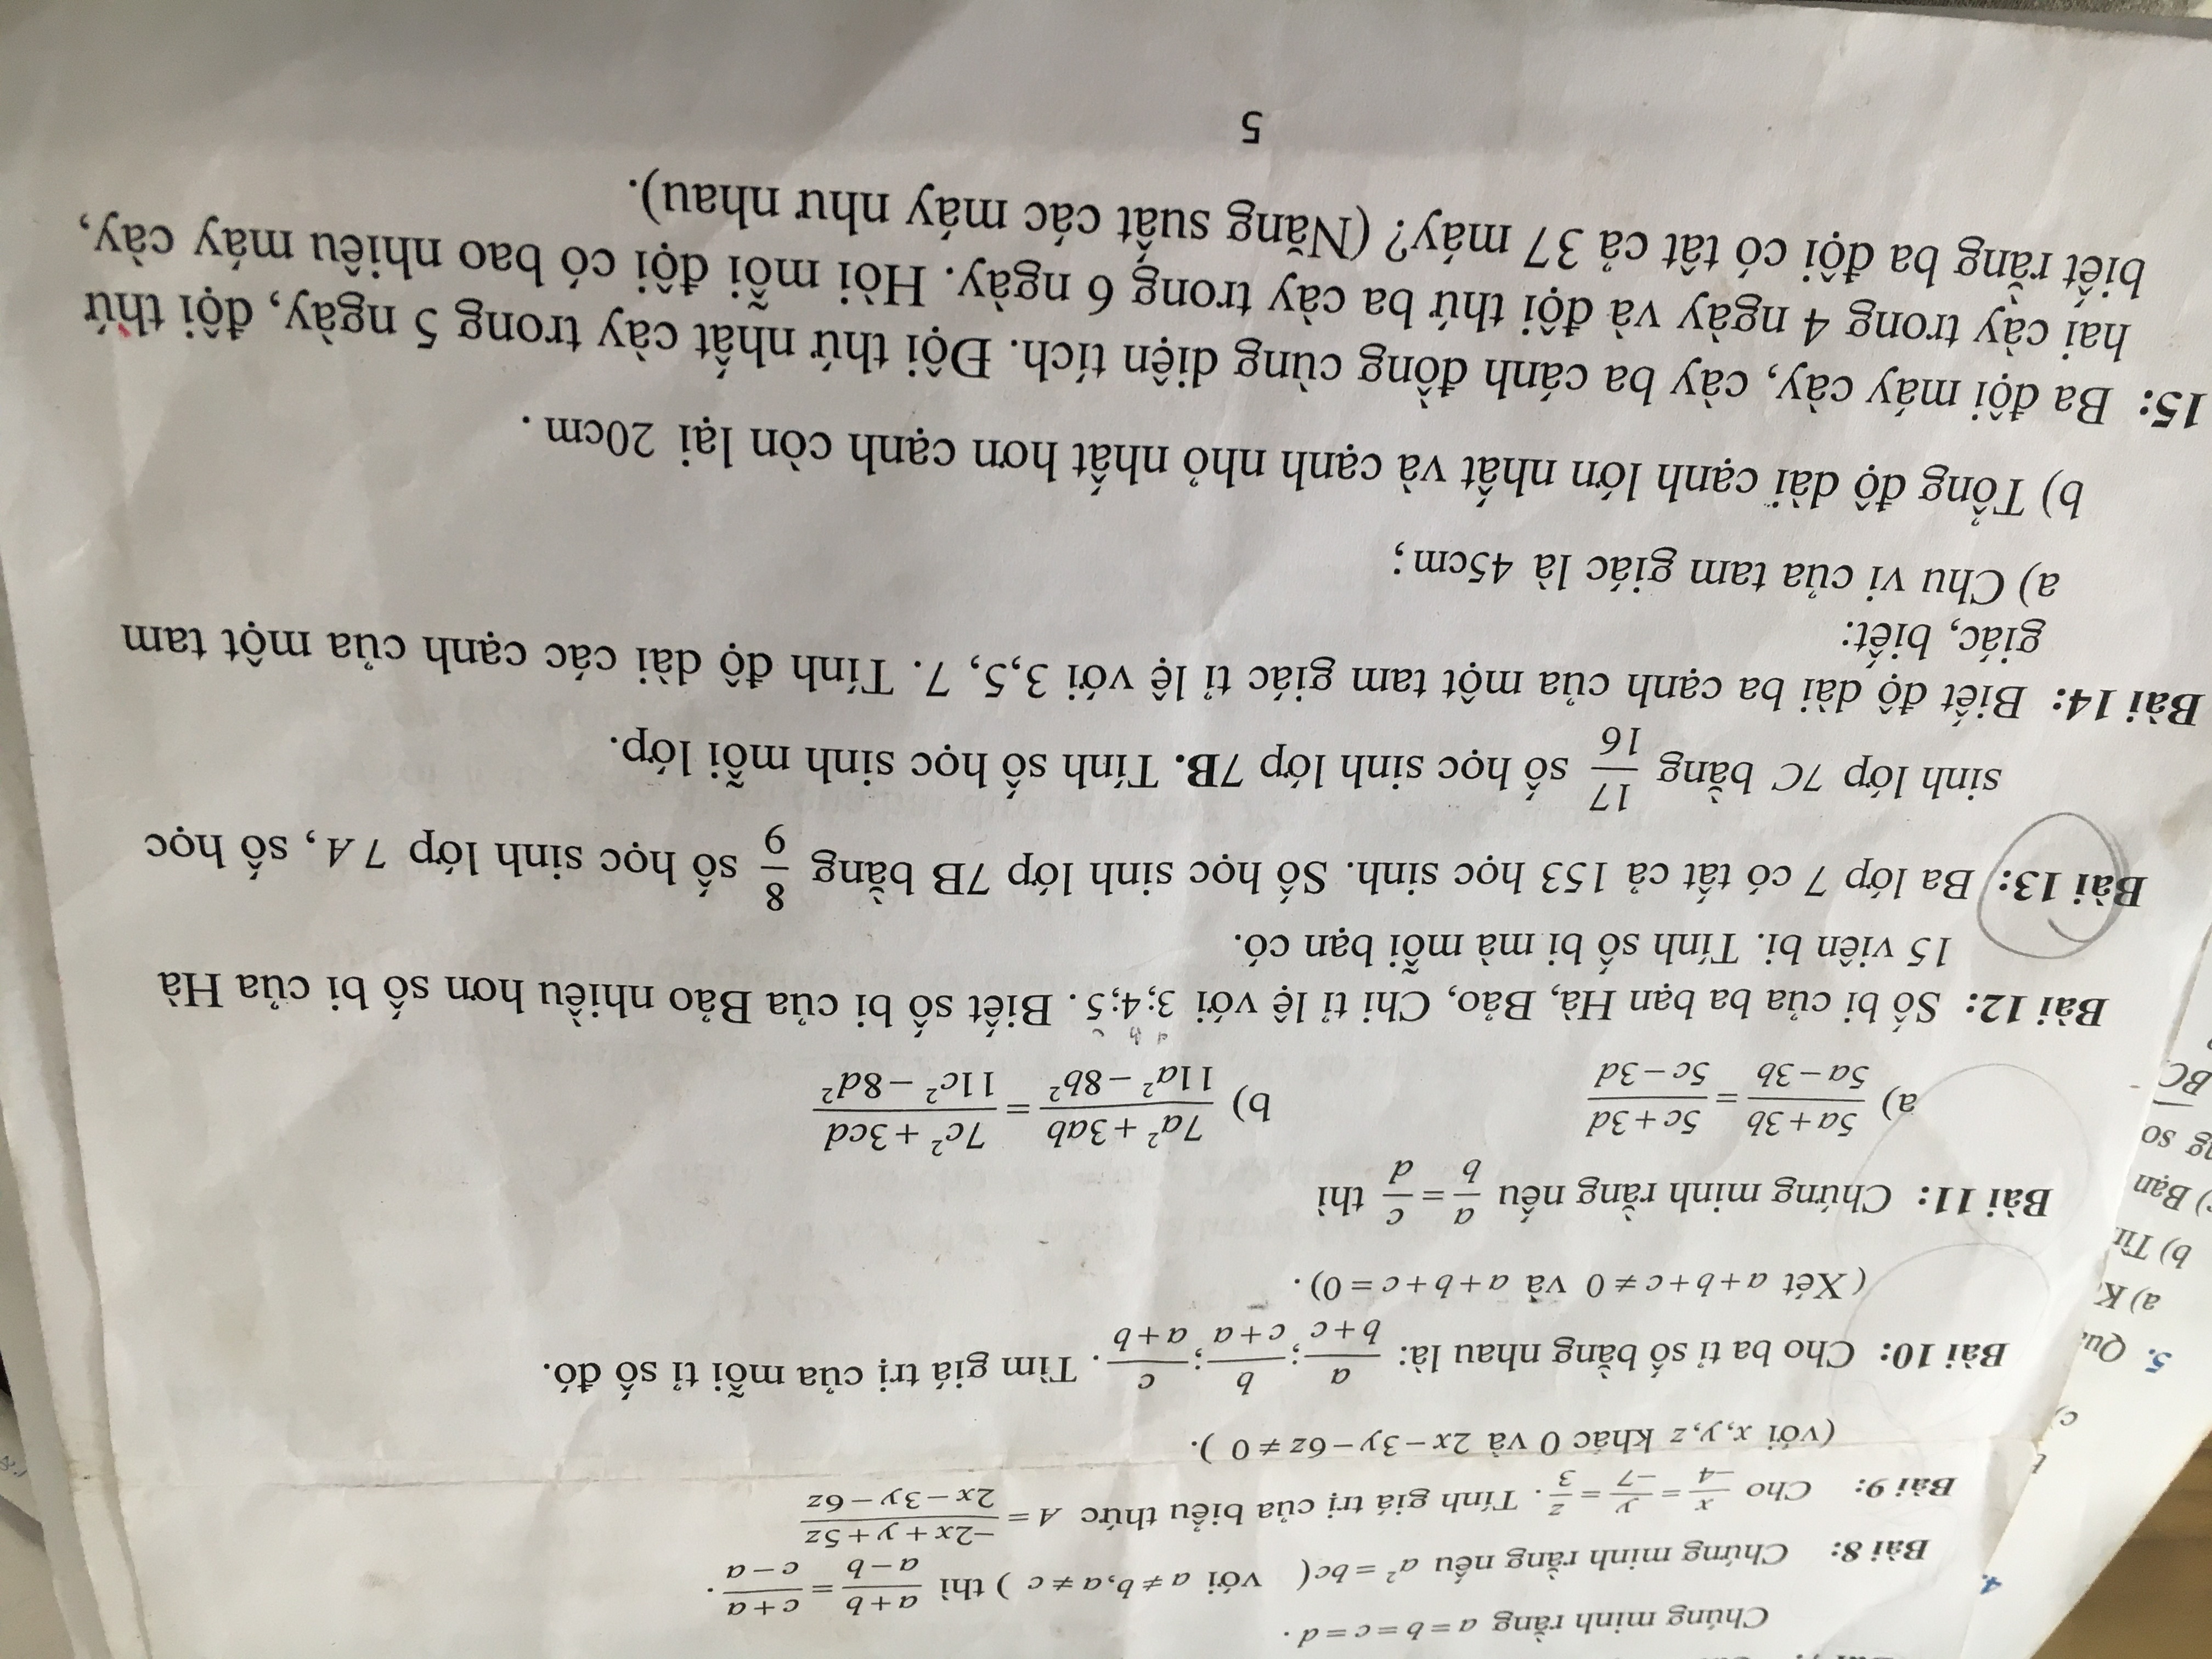 Chứng minh rằng a = b = c = d .
Bài 8: Chứng minh rằng nếu a² = bc ( với a ≠ b, a ≠ c ) thì (a+b)/(a−b) = (c+a)/(c−a) .
Bài 9: Cho x/−4 = y/−7 = z/3 . Tính giá trị của biểu thức A = (−2x + y + 5z)/(2x − 3y − 6z)
(với x, y, z khác 0 và 2x − 3y − 6z ≠ 0 ).
Bài 10: Cho ba tỉ số bằng nhau là: a/(b+c) ; b/(c+a) ; c/(a+b) . Tìm giá trị của mỗi tỉ số đó.
( Xét a + b + c ≠ 0 và a + b + c = 0) .
Bài 11: Chứng minh rằng nếu a/b = c/d thì
a) (5a + 3b)/(5a − 3b) = (5c + 3d)/(5c − 3d) b) (7a² + 3ab)/(11a² − 8b²) = (7c² + 3cd)/(11c² − 8d²)
Bài 12: Số bi của ba bạn Hà, Bảo, Chi tỉ lệ với 3;4;5 . Biết số bi của Bảo nhiều hơn số bi của Hà
15 viên bi. Tính số bi mà mỗi bạn có.
Bài 13: Ba lớp 7 có tất cả 153 học sinh. Số học sinh lớp 7B bằng 8/9 số học sinh lớp 7A , số học
sinh lớp 7C bằng 17/16 số học sinh lớp 7B. Tính số học sinh mỗi lớp.
Bài 14: Biết độ dài ba cạnh của một tam giác tỉ lệ với 3,5, 7. Tính độ dài các cạnh của một tam
giác, biết:
a) Chu vi của tam giác là 45cm ;
b) Tổng độ dài cạnh lớn nhất và cạnh nhỏ nhất hơn cạnh còn lại 20cm .
15: Ba đội máy cày, cày ba cánh đồng cùng diện tích. Đội thứ nhất cày trong 5 ngày, đội thứ
hai cày trong 4 ngày và đội thứ ba cày trong 6 ngày. Hỏi mỗi đội có bao nhiêu máy cày,
biết rằng ba đội có tất cả 37 máy? (Năng suất các máy như nhau).
5
4.
5. Qu
a) K
b) Từ
) Bạn
BC